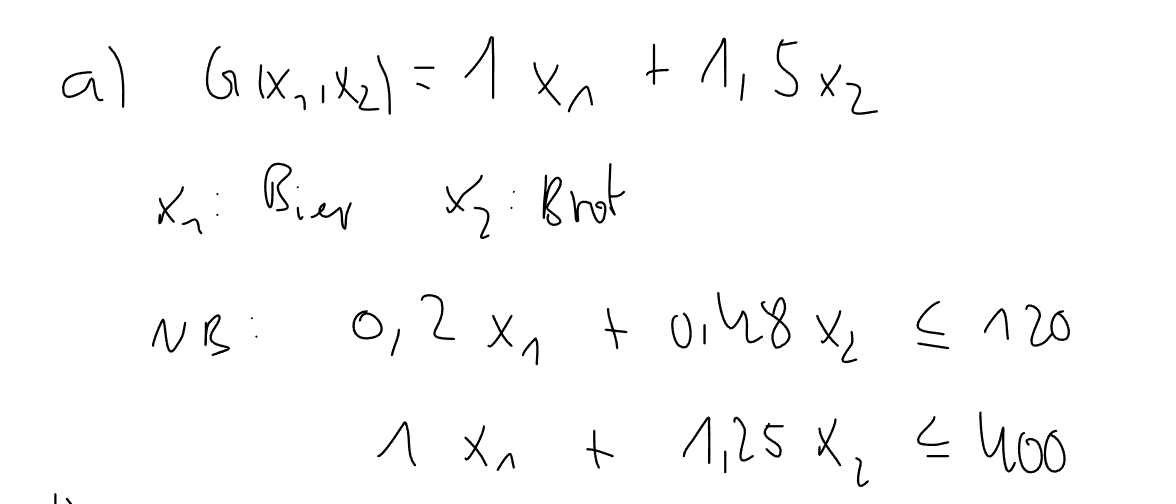 a) G(x₁,x₂) = 1 x₁ + 1,5 x₂
x₁: Bier x₂: Brot
NB: 0,2 x₁ + 0,48 x₂ ≤ 120
1 x₁ + 1,25 x₂ ≤ 400